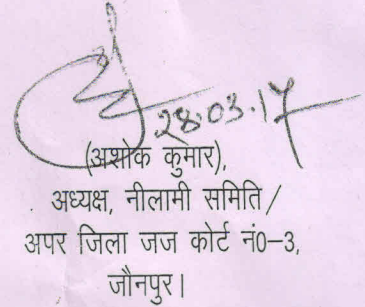 28.03.17
(अशोक कुमार),
अध्यक्ष, नीलामी समिति/
अपर जिला जज कोर्ट नं0-3,
जौनपुर।